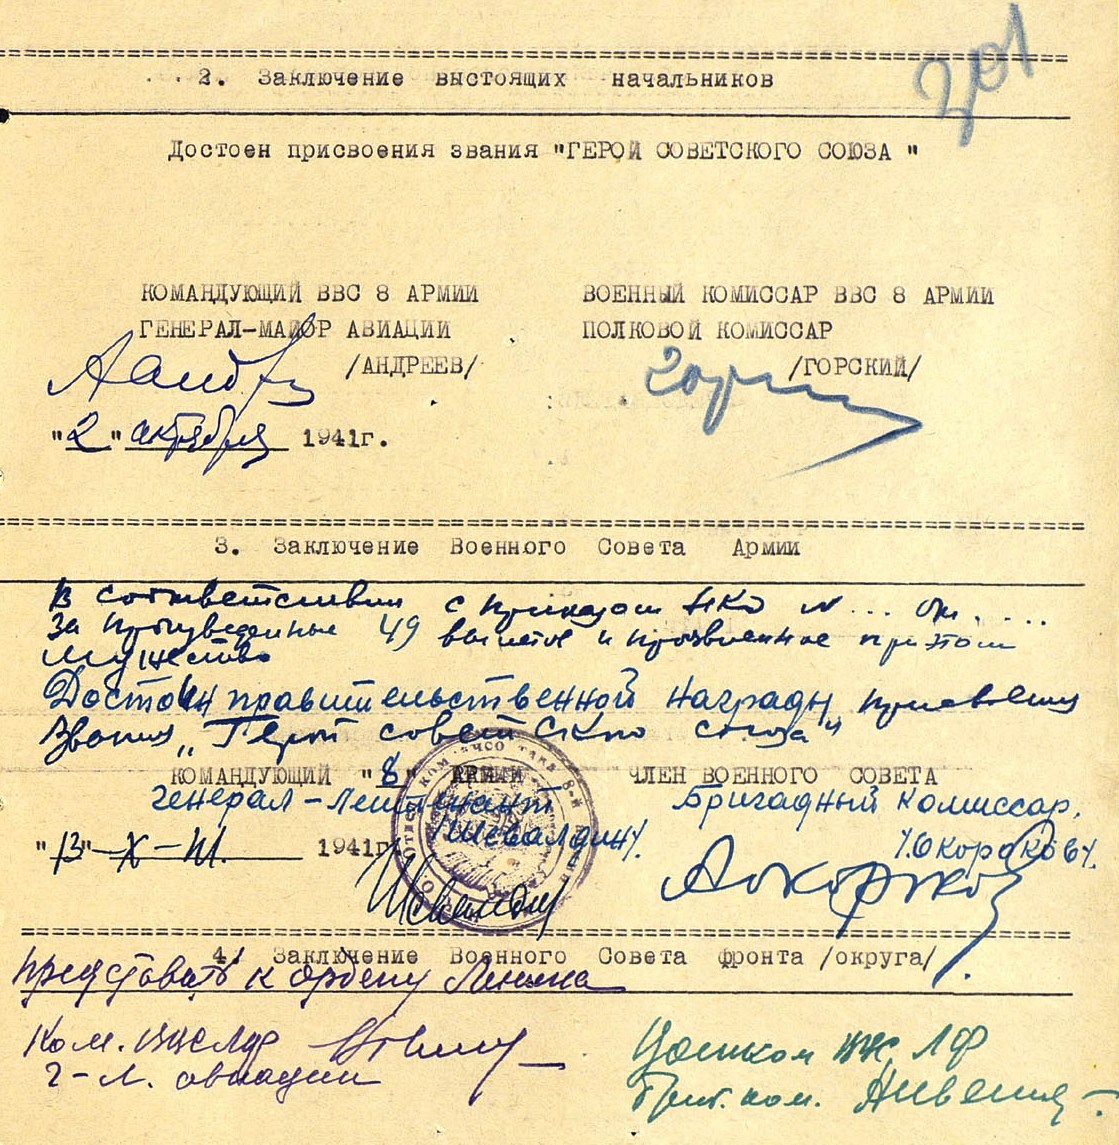 201
2. Заключение выстоящих начальников
Достоен присвоения звания "ГЕРОЙ СОВЕТСКОГО СОЮЗА "
КОМАНДУЮЩИЙ ВВС 8 АРМИИ ВОЕННЫЙ КОМИССАР ВВС 8 АРМИИ
ГЕНЕРАЛ-МАЙОР АВИАЦИИ ПОЛКОВОЙ КОМИССАР
/АНДРЕЕВ/ /ГОРСКИЙ/
"2" октября 1941г.
3. Заключение Военного Совета Армии
В соответствии с приказом НКО N... от....
За произведенные 49 вылетов и проявленное при этом
мужество
Достоин правительственной награды присвоения
Звания "Герой советского союза"
КОМАНДУЮЩИЙ "8" АРМИИ ЧЛЕН ВОЕННОГО СОВЕТА
Генерал-Лейтенант Бригадный комиссар.
/Шевалдин/. /Окороков/.
1941г.
4. Заключение Военного Совета фронта /округа/
представить к ордену Ленина
Ком. ВВС ЛФ ВВС ЛФ
г-л. авиации Бриг. ком.